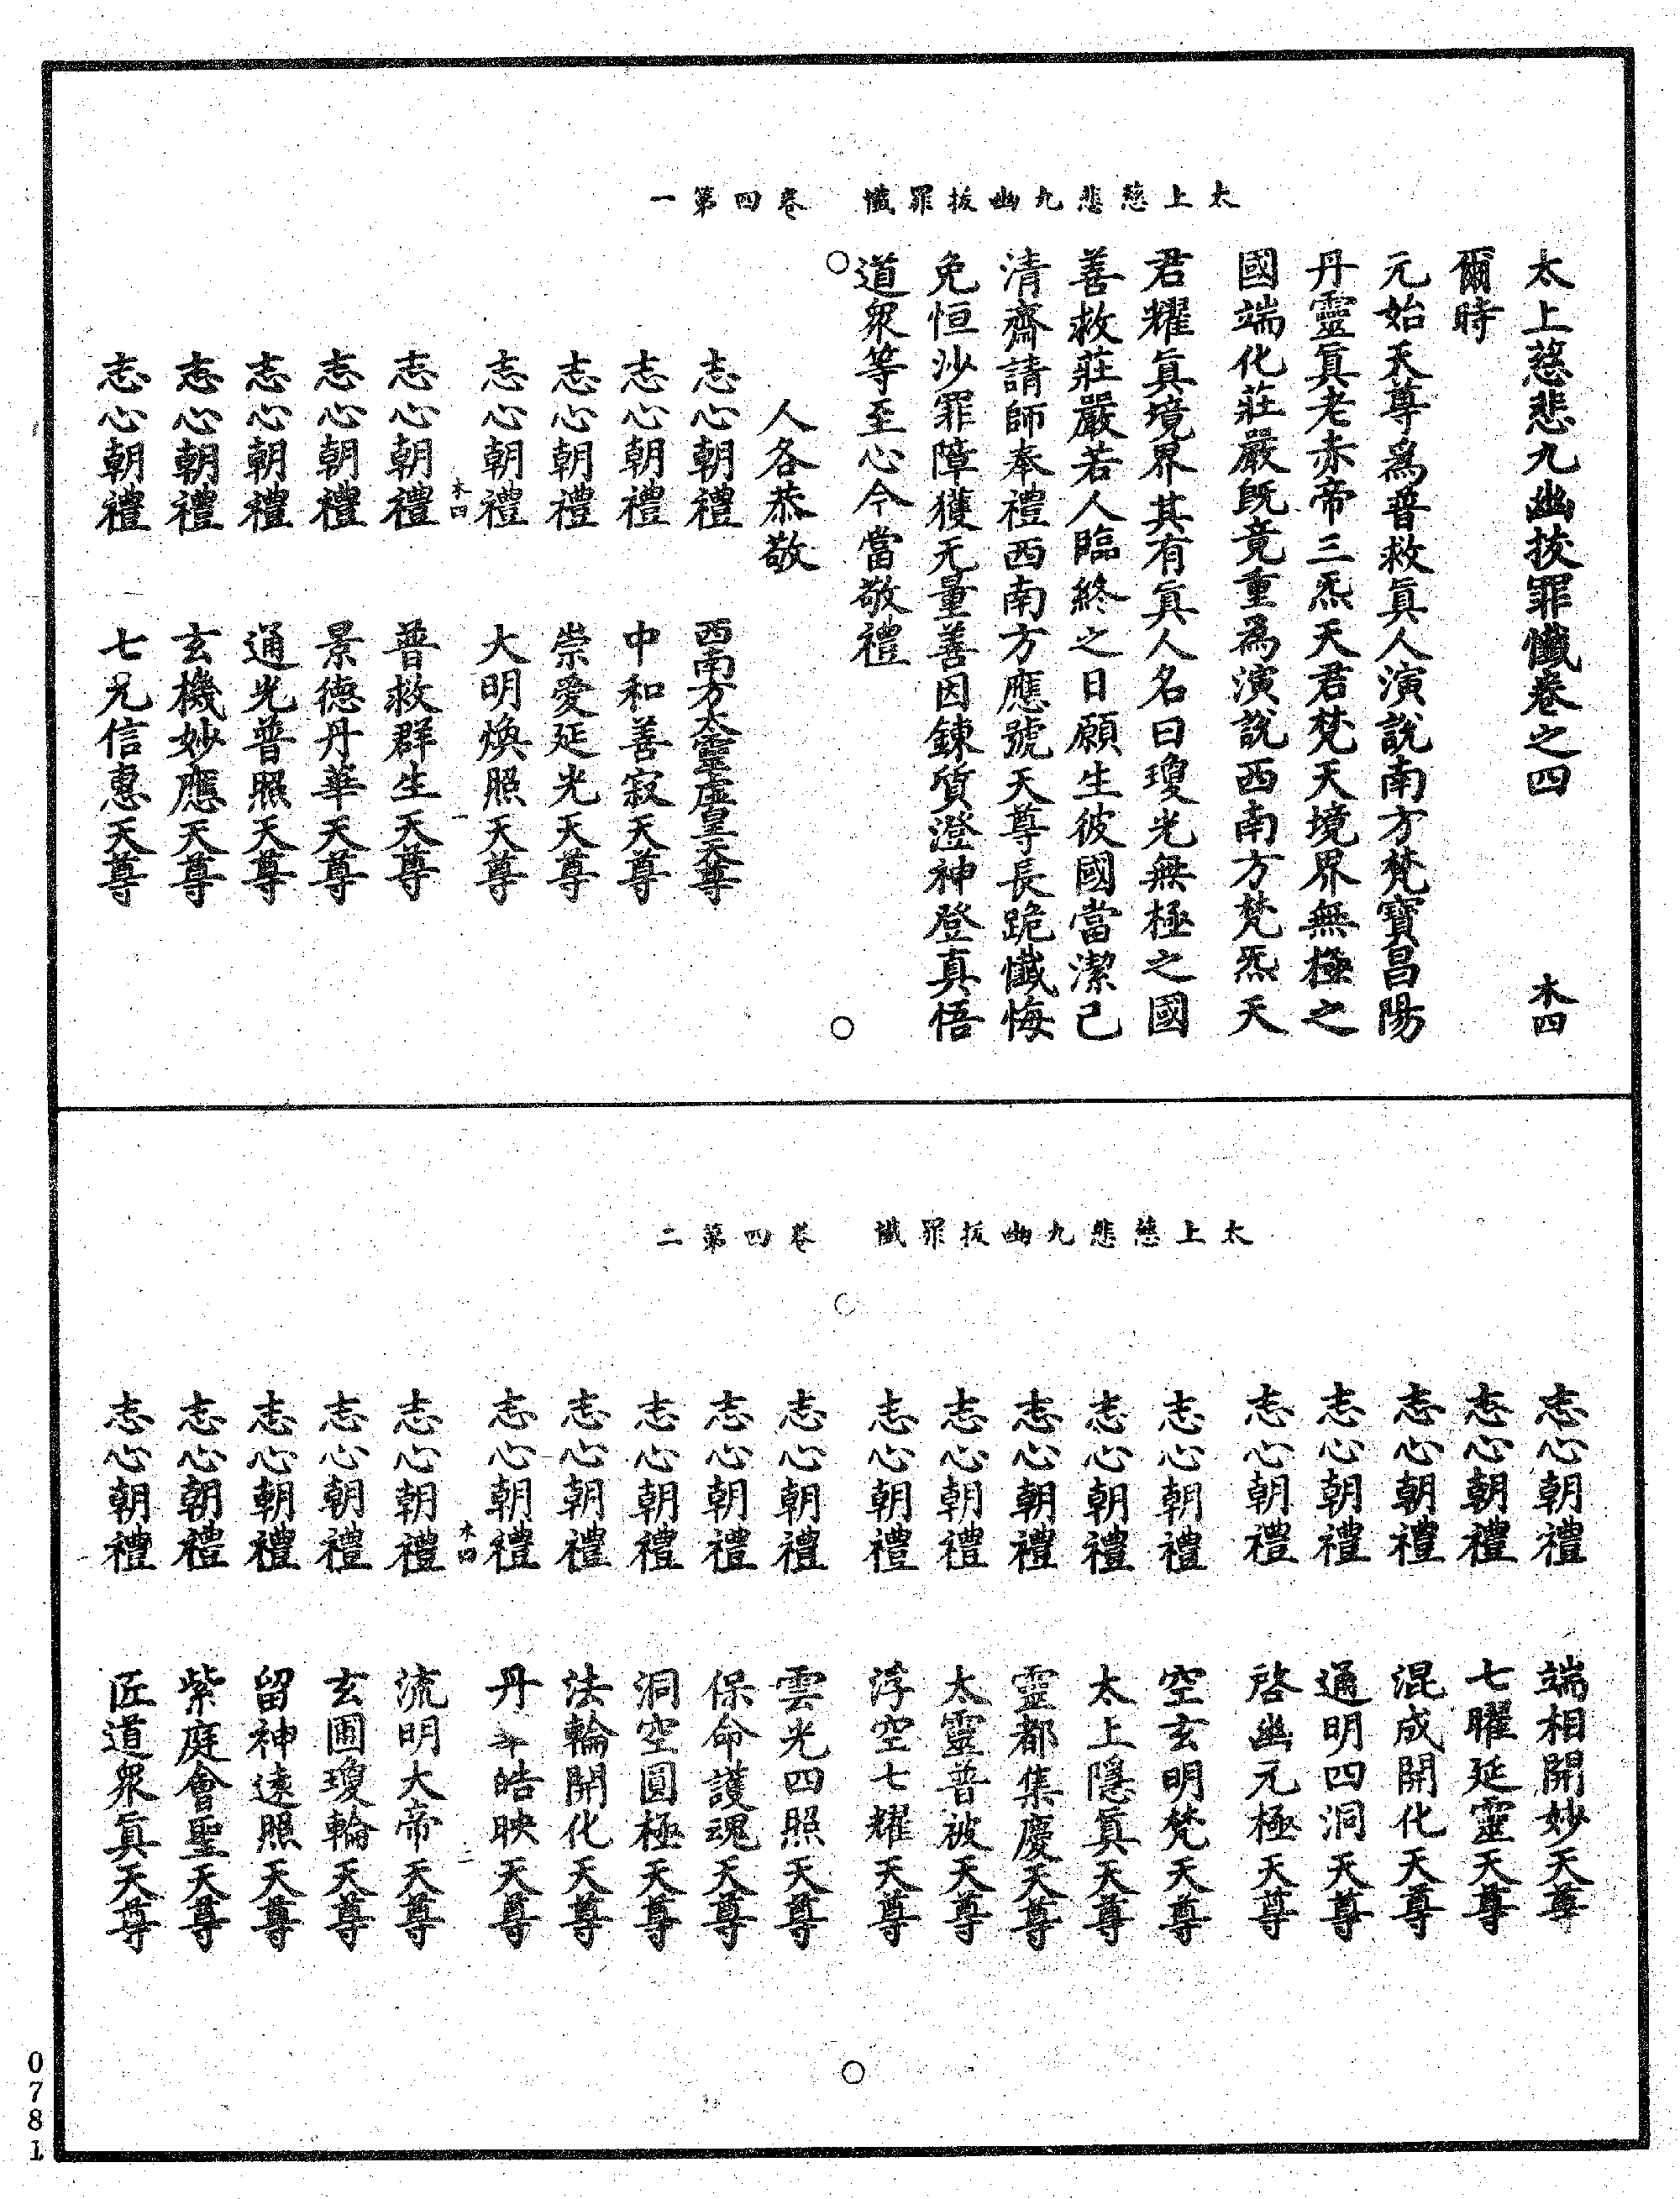 太上慈悲九幽拔罪懺　卷四第一
太上慈悲九幽拔罪懺卷之四　木四
爾時
元始天尊為普救眞人演說南方梵寶昌陽
丹靈眞老赤帝三炁天君梵天境界無極之
國端化莊嚴既竟重為演說西南方梵炁天
君耀眞境界其有眞人名曰瓊光無極之國
善救莊嚴若人臨終之日願生彼國當潔己
清齋請師奉禮西南方應號天尊長跪懺悔
免恒沙罪障獲无量善因鍊質澄神登真悟
道眾等至心今當敬禮
人各恭敬
志心朝禮　西南方太靈虛皇天尊
志心朝禮　中和善寂天尊
志心朝禮　崇愛延光天尊
志心朝禮　大明煥照天尊
木四　一
志心朝禮　普救群生天尊
志心朝禮　景德丹華天尊
志心朝禮　通光普照天尊
志心朝禮　玄機妙應天尊
志心朝禮　七元信惠天尊
太上慈悲九幽拔罪懺　卷四第二
志心朝禮　端相開妙天尊
志心朝禮　七曜延靈天尊
志心朝禮　混成開化天尊
志心朝禮　通明四洞天尊
志心朝禮　啓幽元極天尊
志心朝禮　空玄明梵天尊
志心朝禮　太上隱眞天尊
志心朝禮　靈都集慶天尊
志心朝禮　太靈普被天尊
志心朝禮　浮空七耀天尊
志心朝禮　雲光四照天尊
志心朝禮　保命護魂天尊
志心朝禮　洞空圓極天尊
志心朝禮　法輪開化天尊
志心朝禮　丹皓映天尊
木四　二
志心朝禮　流明大帝天尊
志心朝禮　玄圃瓊輪天尊
志心朝禮　留神遠照天尊
志心朝禮　紫庭會聖天尊
志心朝禮　匠道眾眞天尊
0781